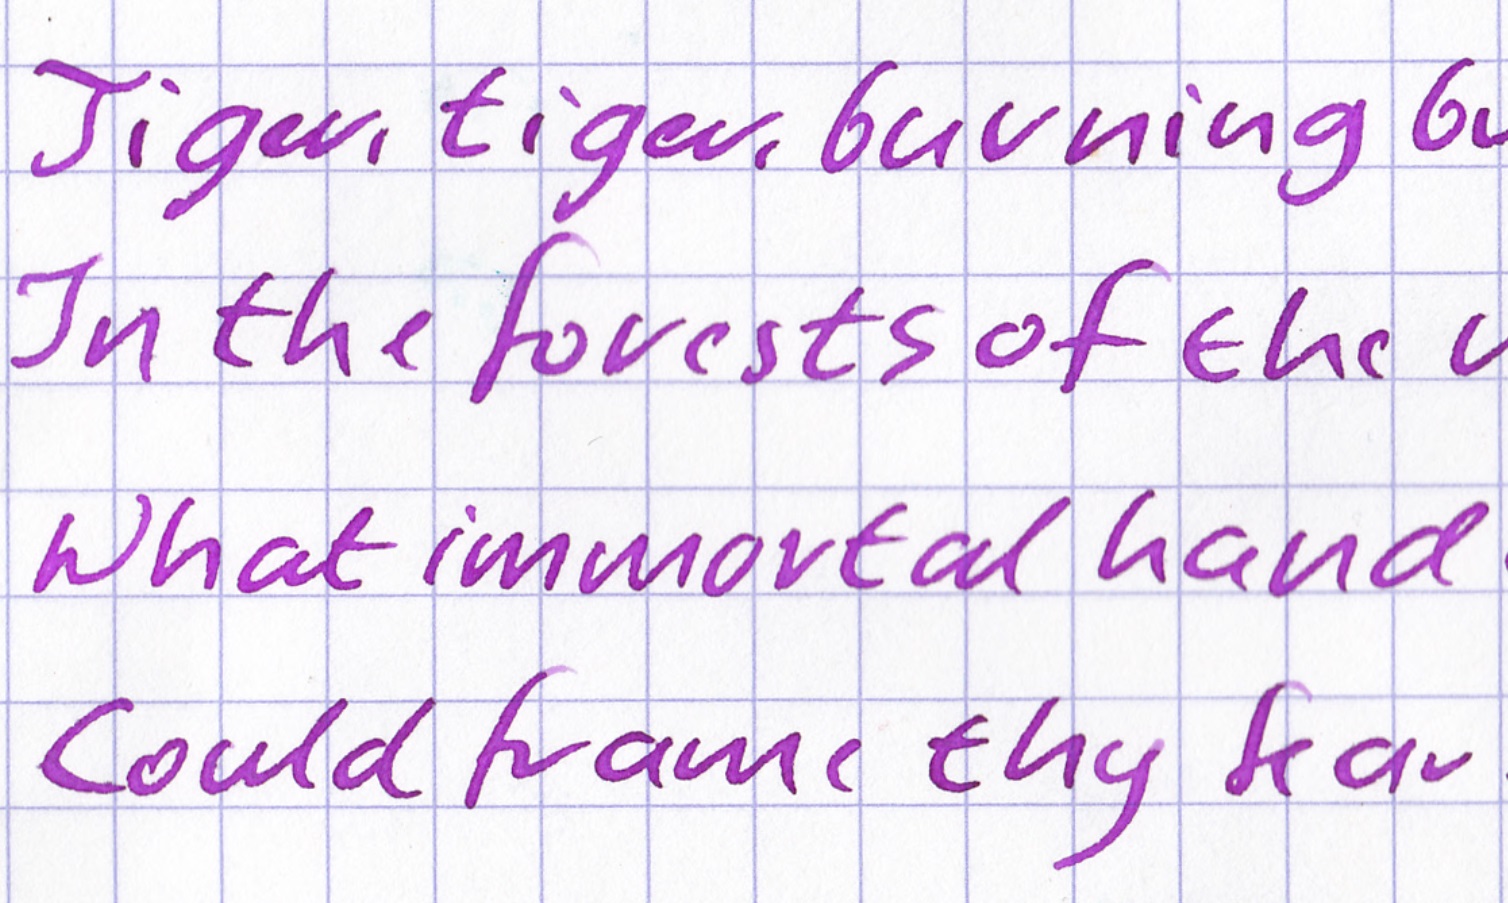 Tiger, tiger, burning br
In the forests of the
What immortal hand
Could frame thy fear